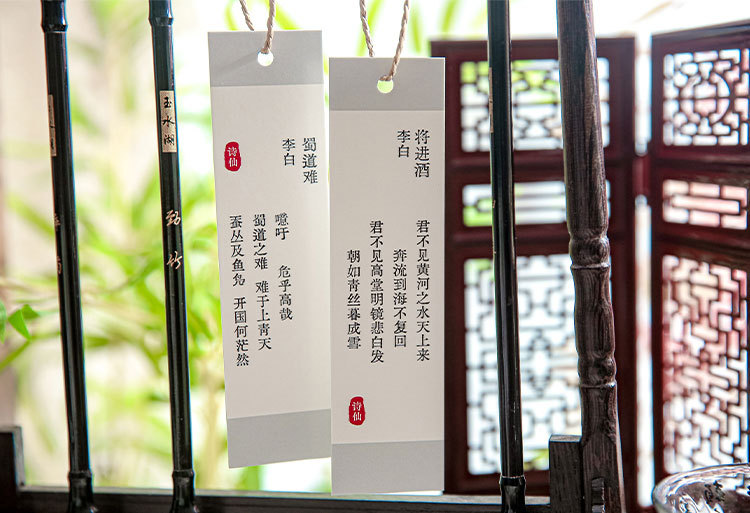 蜀道难
李白
噫吁 危乎高哉
蜀道之难 难于上青天
蚕丛及鱼凫 开国何茫然
诗仙
将进酒
李白
君不见黄河之水天上来
奔流到海不复回
君不见高堂明镜悲白发
朝如青丝暮成雪
诗仙
玉水湖
劲竹